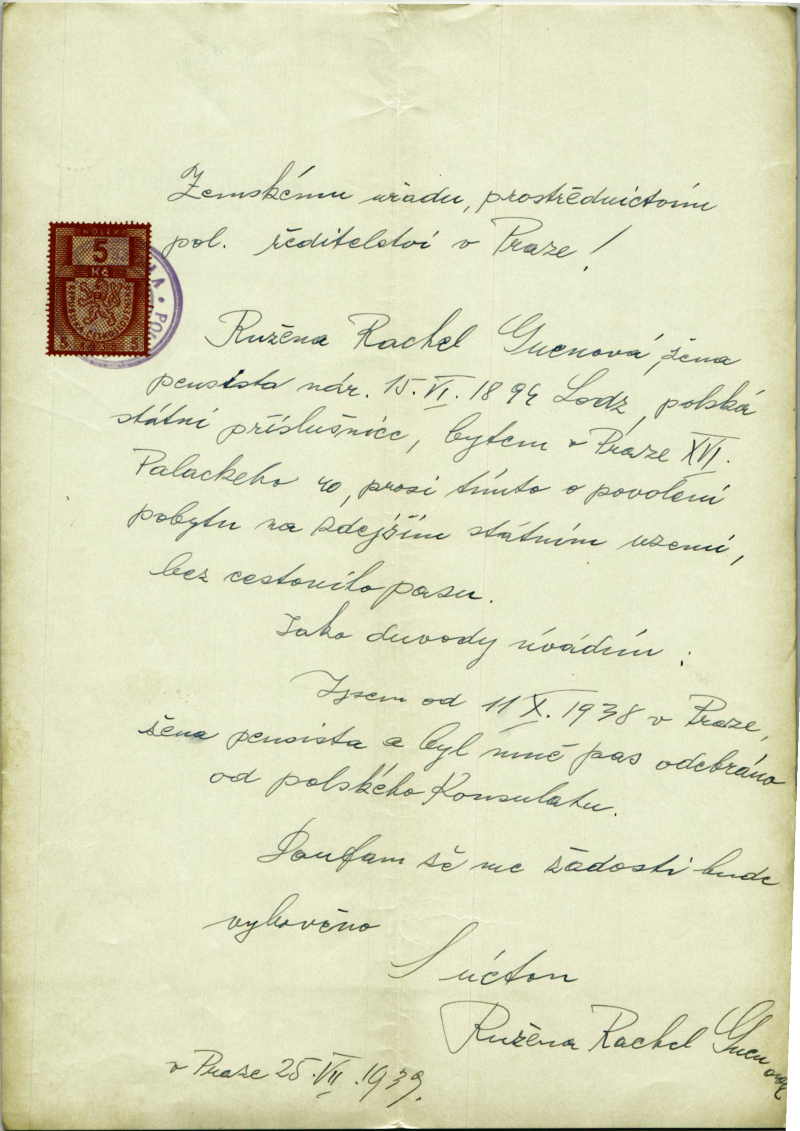 Zemskému uřadu, prostřědnictvim
pol. ředitelství v Praze!
KOLEK
5
Kč
5 5
Ružěna Rachel Guenová, žena
pensista nár. 15. VI. 1894 Lodz, polská
státní příslušnice, bytem v Praze XVI.
Palackeho 40, prosi tímto o povolení
pobytu na zdejším státním uzemí,
bez cestovního pasu.
Jako duvody úvádím:
Jsem od 11 X. 1938 v Praze,
žena pensista a byl mně pas odebráno
od polského Konsulatu.
Doufam žě me žádosti bude
vyhověno
S úctou
Ružěna Rachel Guenová
v Praze 25. VII. 1939.